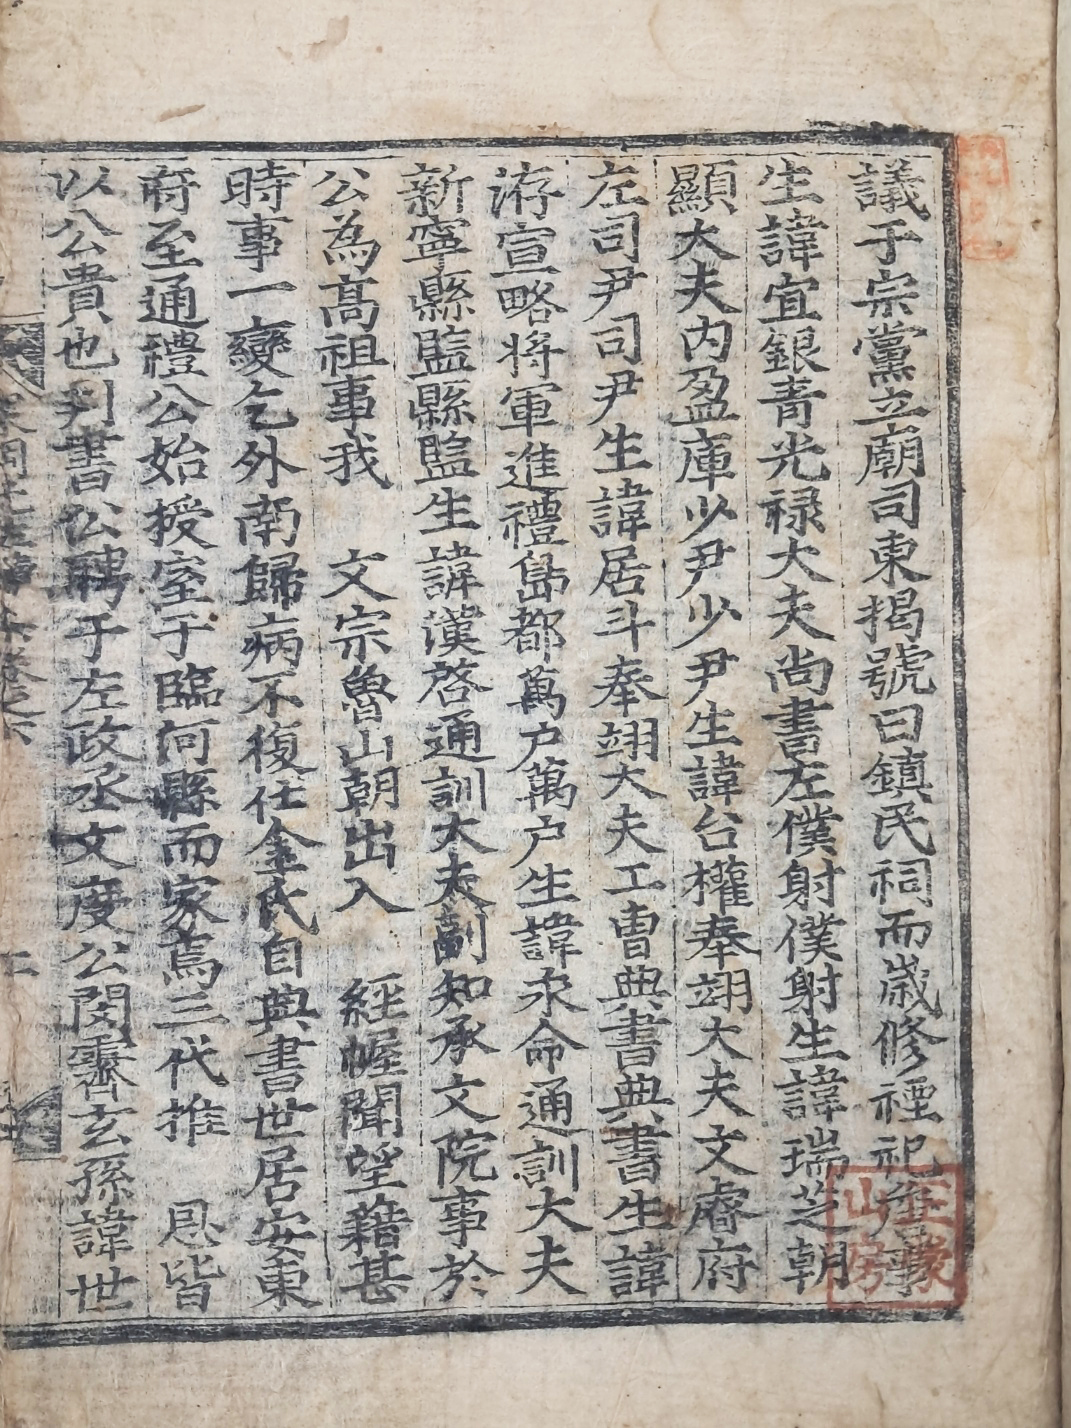 議于宗黨立廟司東揭號曰鎮民祠而歲修禋祀
生諱宜銀青光祿大夫尚書左僕射僕射生諱瑞芝朝
顯大夫內盈庫少尹少尹生諱台權奉翊大夫文睿府
左司尹司尹生諱居斗奉翊大夫工曹典書典書生諱
洊宣略將軍進禮島都萬户萬户生諱永命通訓大夫
新寧縣監縣監生諱漢啓通訓大夫副知承文院事於
公為高祖事我 文宗魯山朝出入 經幄聞望藉甚
時事一變乞外南歸病不復仕金氏自典書世居安東
府至通禮公始授室于臨河縣而家焉三代推 恩皆
以公貴也判書公聘于左政丞文度公閔霽玄孫諱世